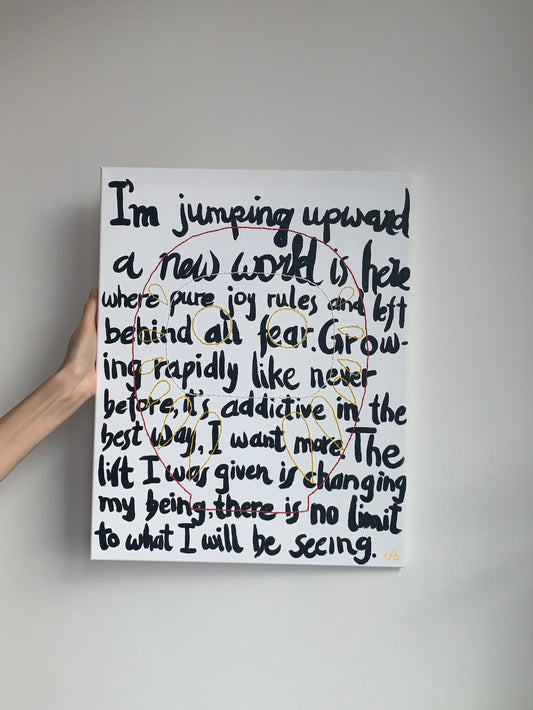 I'm jumping upward
a new world is here
where pure joy rules and left
behind all fear. Grow-
ing rapidly like never
before, it's addictive in the
best way, I want more. The
lift I was given is changing
my being, there is no limit
to what I will be seeing.
vb